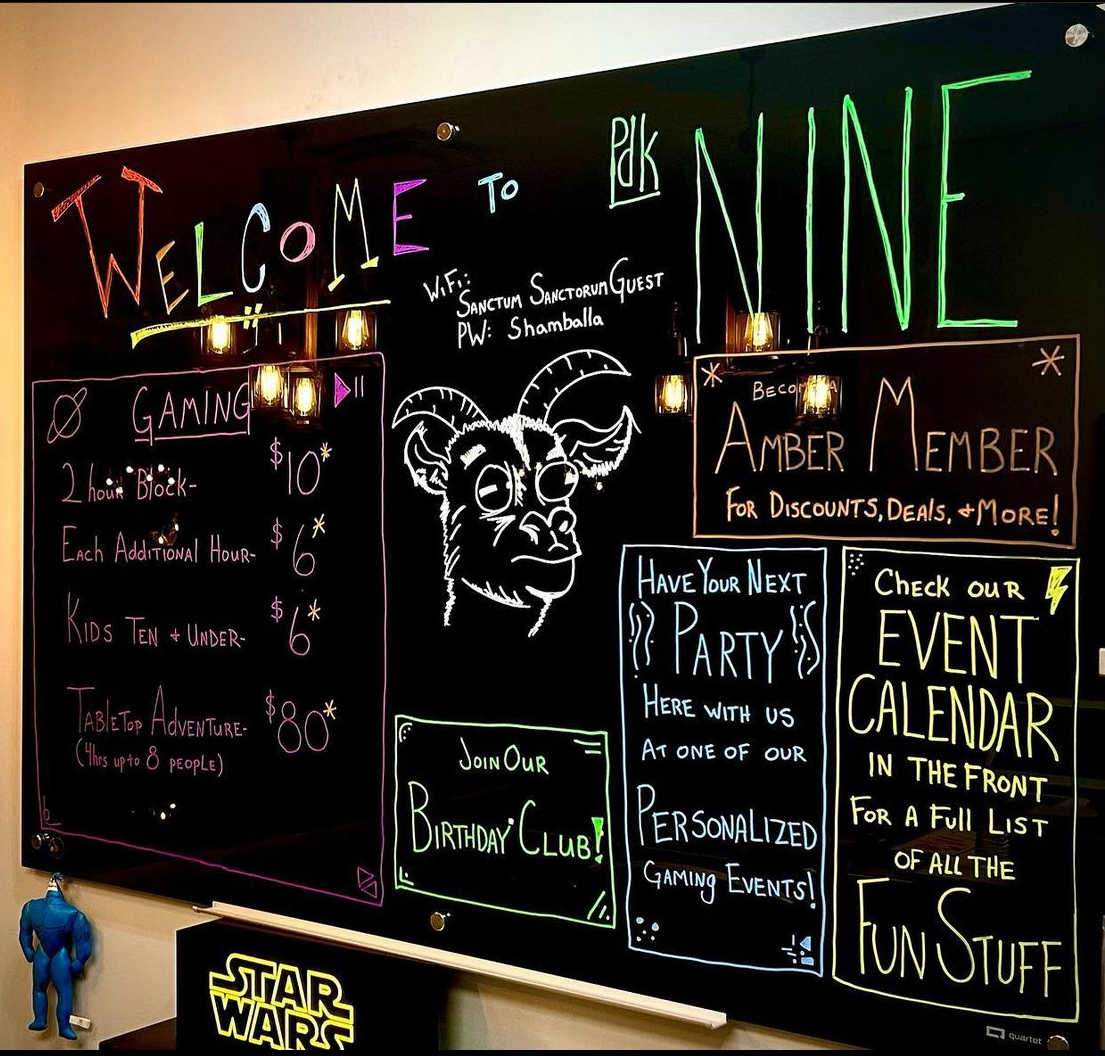 WELCOME TO Pdk NINE
WiFi:
SANCTUM SANCTORUM GUEST
PW: Shamballa
GAMING
2 hour Block- $10*
EACH ADDITIONAL HOUR- $6*
KIDS TEN + UNDER- $6*
TABLETOP ADVENTURE- $80*
(4hrs up to 8 PEOPLE)
* BECOME A *
AMBER MEMBER
FOR DISCOUNTS, DEALS, +MORE!
JOIN OUR
BIRTHDAY CLUB!
HAVE YOUR NEXT
PARTY
HERE WITH US
AT ONE OF OUR
PERSONALIZED
GAMING EVENTS!
CHECK OUR
EVENT
CALENDAR
IN THE FRONT
FOR A FULL LIST
OF ALL THE
FUN STUFF
STAR
WARS
quartet